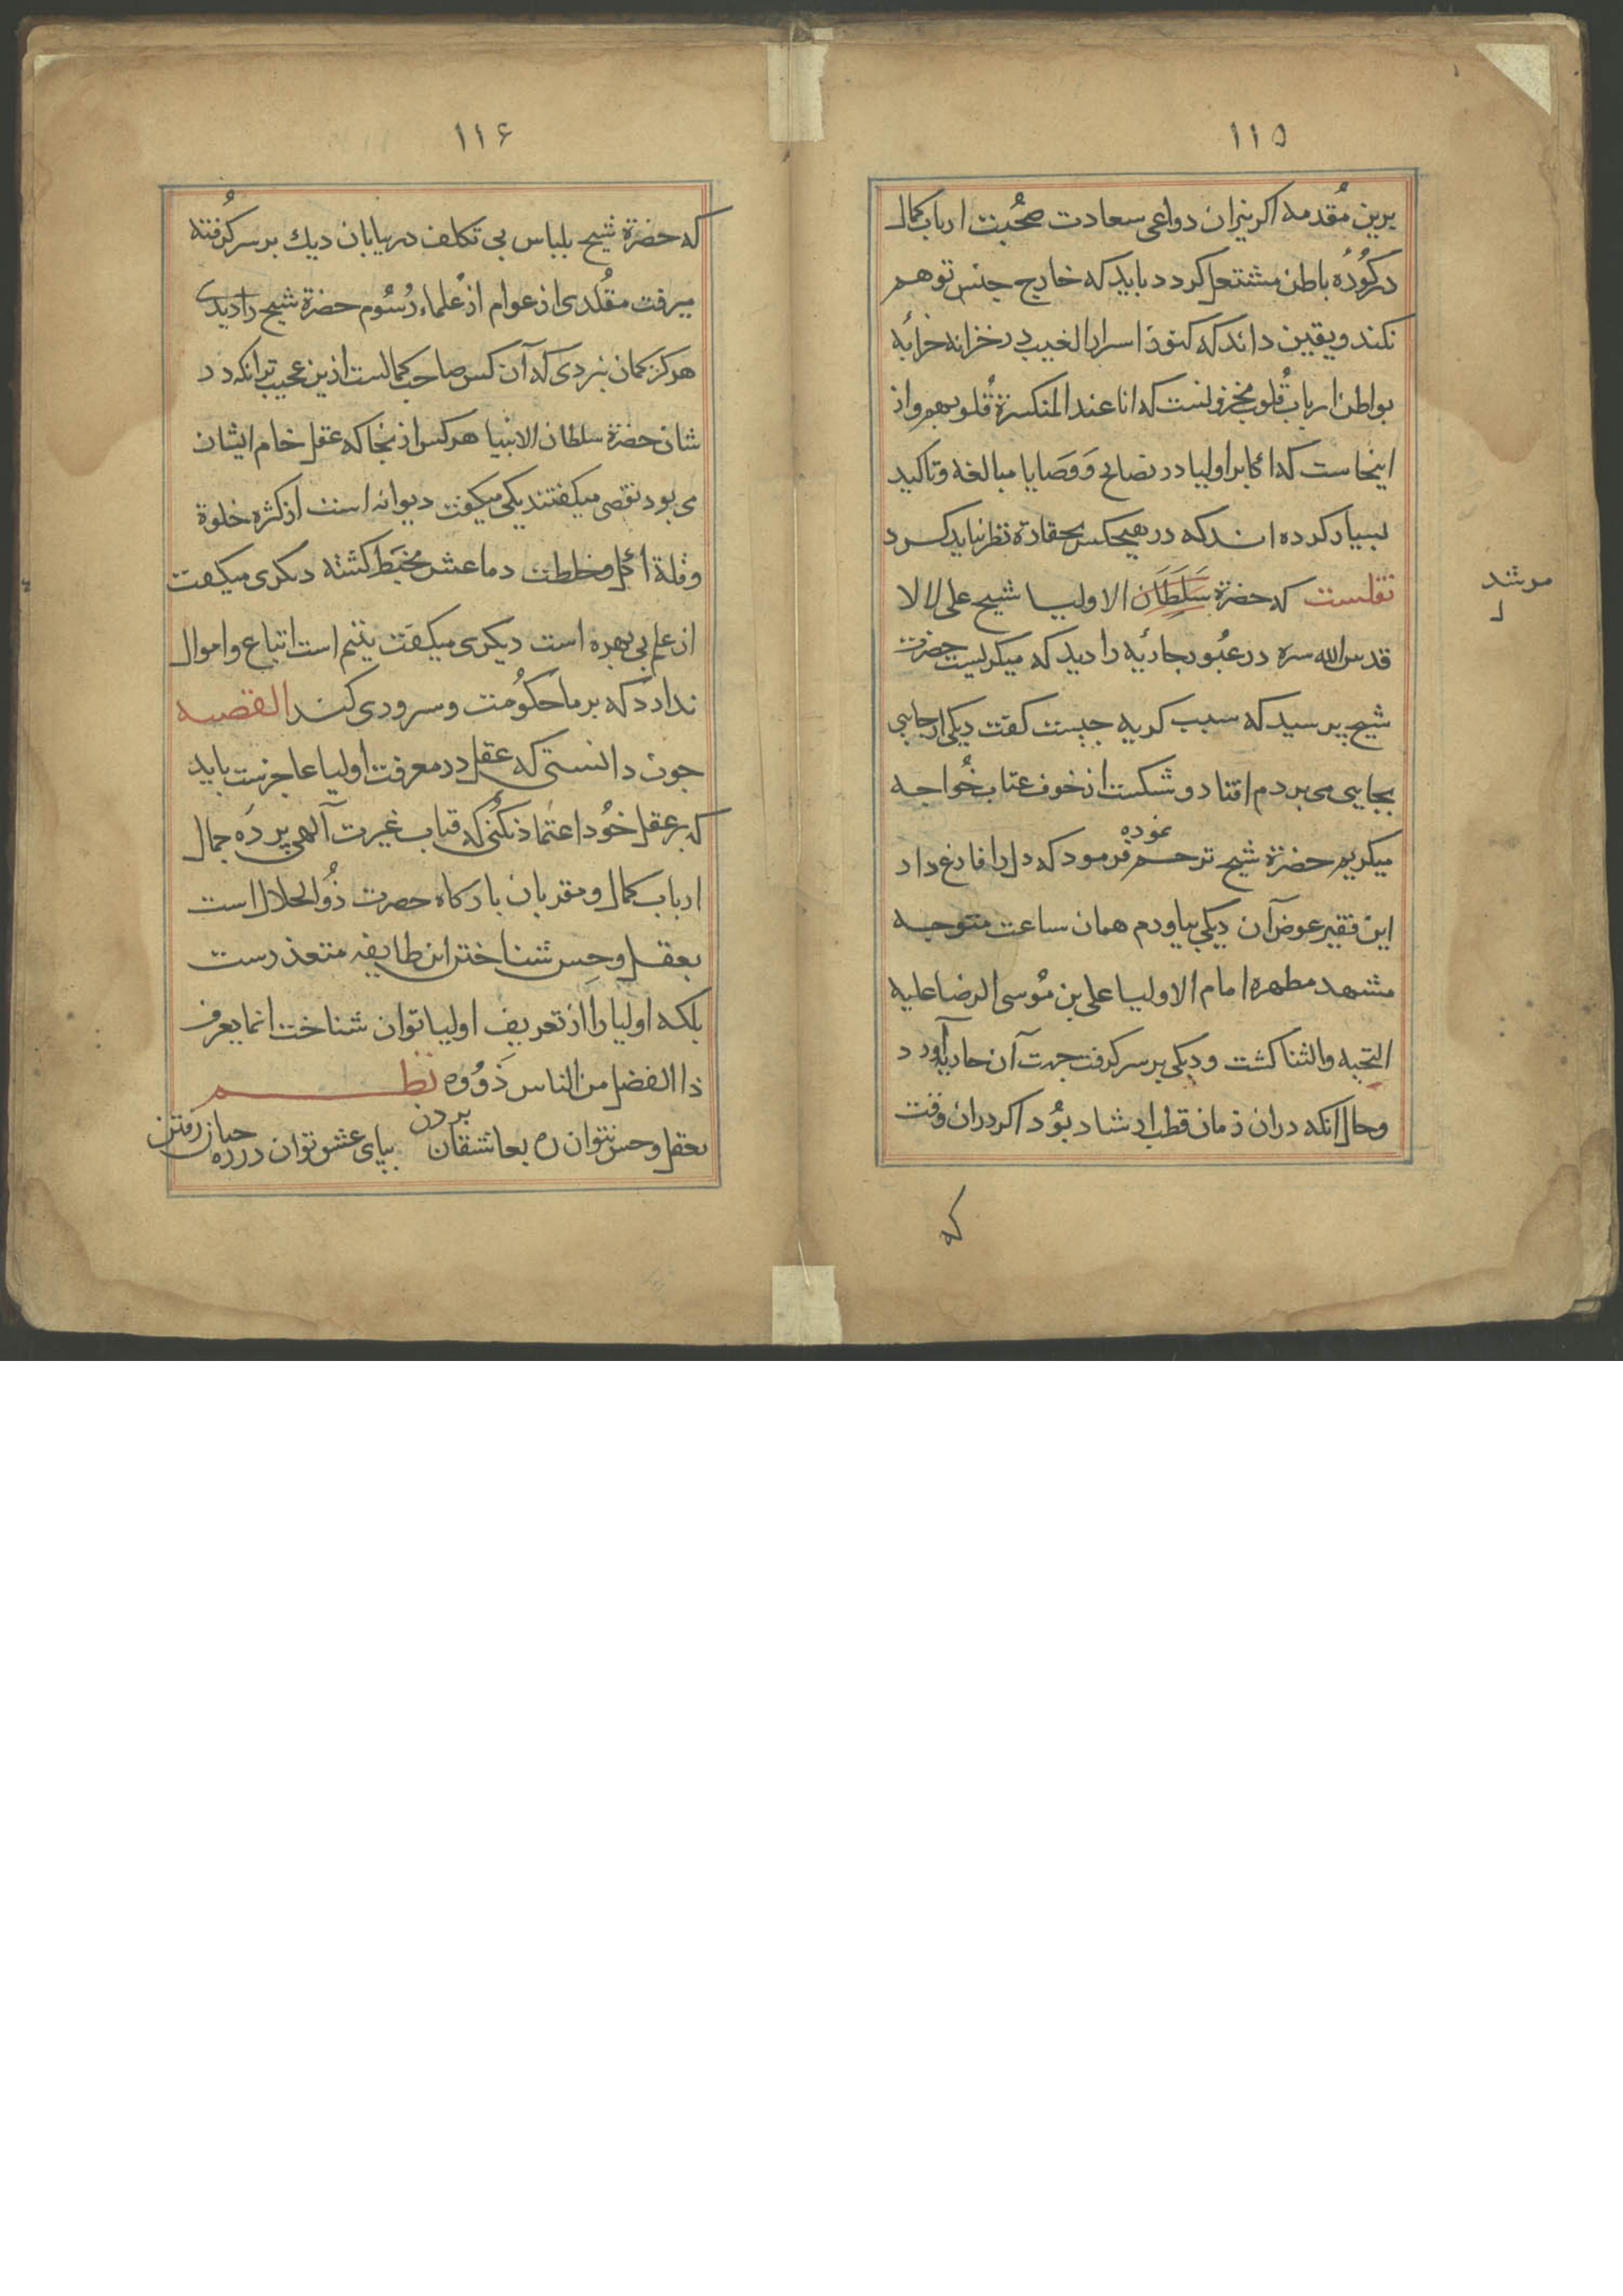 ۱۱۵
برین مقدمه اکر نیران دواعی سعادت صحبت ارباب کمال
در کوره باطن مشتعل کردد باید که خارج جنس توهم
نکند و یقین داند که کنوز اسرار الغیب در خزانه خرابه
بواطن ارباب قلوب مخزونست که انا عند المنکسرة قلوبهم و از
اینجاست که اکابر اولیا در نصایح و وصایا مبالغه و تاکید
بسیار کرده اند که در هیچکس بحقارة نظر نباید کرد
نقلست که حضرة سلطان الاولیا شیخ علی لالا
مرشد
قدس الله سره در عبور جاریه را دید که میکریست حضرت
شیخ پرسید که سبب کریه چیست کفت دیکی از جایی
بجایی می بردم افتاد و شکست از خوف عتاب خواجه
میکریم حضرة شیخ ترحم نموده فرمود که دل را فارغ دار
این فقیر عوض آن دیکی بیاورم همان ساعت متوجه
مشهد مطهره امام الاولیا علی بن موسی الرضا علیه
التحیه والثنا کشت و دیکی بر سر کرفت جهت آن جاریه آورد
و حال آنکه دران زمان قطب ارشاد بود اکر دران وقت
که
۱۱۶
که حضرة شیخ بلباس بی تکلف در بیابان دیك بر سر کرفته
میرفت مقلدی از عوام از علماء رسوم حضرة شیخ را دیدی
هرکز کمان نبردی که آن کس صاحب کمالست ازین عجیب تر انکه در
شان حضرة سلطان الانبیا هرکس از نجا که عقل خام ایشان
می بود نقصی میکفتند یکی میکفت دیوانه است از کثره خلوة
وقلة اکل و خلطت دماغش مخبط کشته دیکری میکفت
از علم بی بهره است دیکری میکفت یتیم است اتباع و اموال
ندارد که بر ما حکومت و سروری کند القصه
چون دانستی که عقل در معرفت اولیا عاجزست باید
که بر عقل خود اعتماد نکنی که قباب غیرت آلهی پرده جمال
ارباب کمال و مقربان بارکاه حضرت ذوالجلال است
بعقل و حس شناختن این طایفه متعذرست
بلکه اولیا را از تعریف اولیا توان شناخت انما یعرف
ذا الفضل من الناس ذووه نظم
بعقل و حس نتوان ره بعاشقان بردن بپای عشق توان در ره رفتن